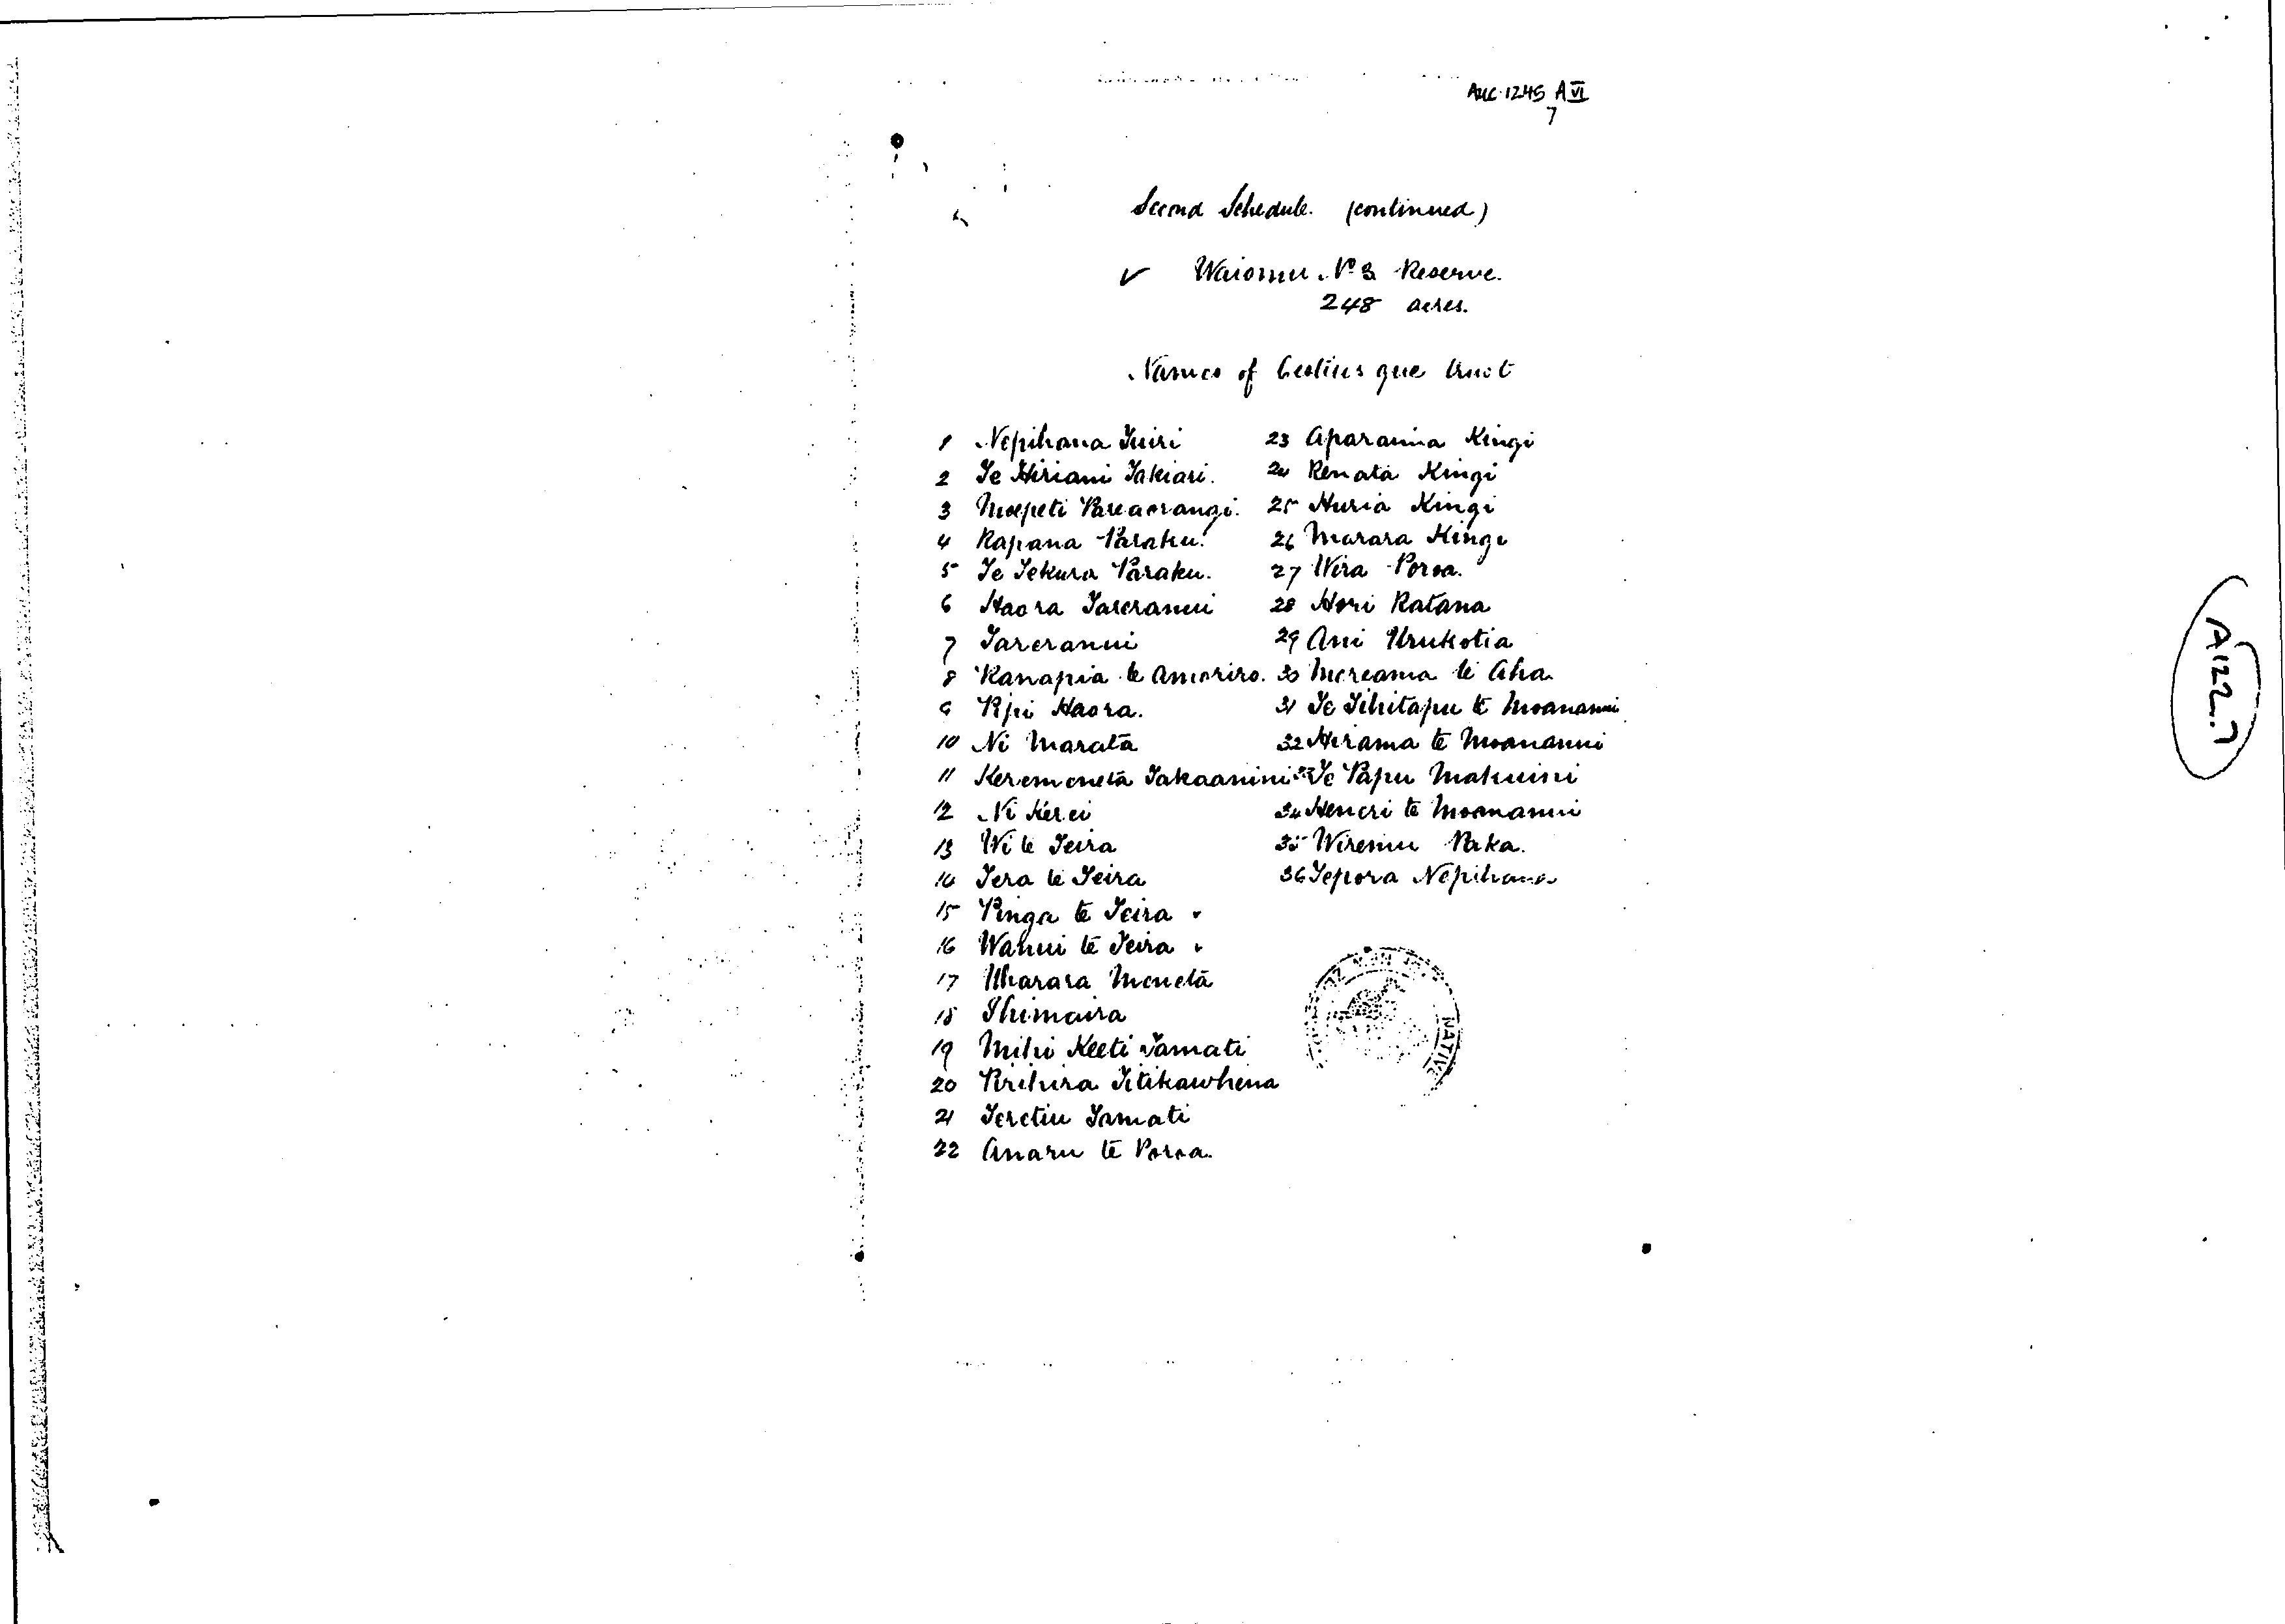 AUC·1245 A VI
7
Second Schedule. (continued)
✓ Waiomu No 3 Reserve.
248 acres.
Names of Cestius que trust
1 Nepihana Tuiri
2 Te Hiriani Takiari.
3 Moepeti Pareaorangi.
4 Rapana Paraku.
5 Te Tekura Paraku.
6 Haora Tareranui
7 Tareranui
8 Kanapia te Amoriro.
9 Pipi Haora.
10 Ni Marata
11 Keremeneta Takaanini
12 Ni Kerei
13 Wi te Teira
14 Tera te Teira
15 Pinga te Teira
16 Wanui te Teira
17 Wharara Meneta
18 Ihimaira
19 Mihi Keeti Tamati
20 Pirihira Titikawhena
21 Teretiu Tamati
22 Anaru te Poroa.
23 Aparaima Kingi
24 Renata Kingi
25 Huria Kingi
26 Marara Kingi
27 Wira Poroa.
28 Hori Ratana
29 Ani Urukotia
30 Mereama te Aha
31 Te Tihitapu te Moananui
32 Hirama te Moananui
33 Te Papu Makuini
34 Heneri te Moananui
35 Wiremu Paka.
36 Tepora Nepihana
NATIVE
A122.7